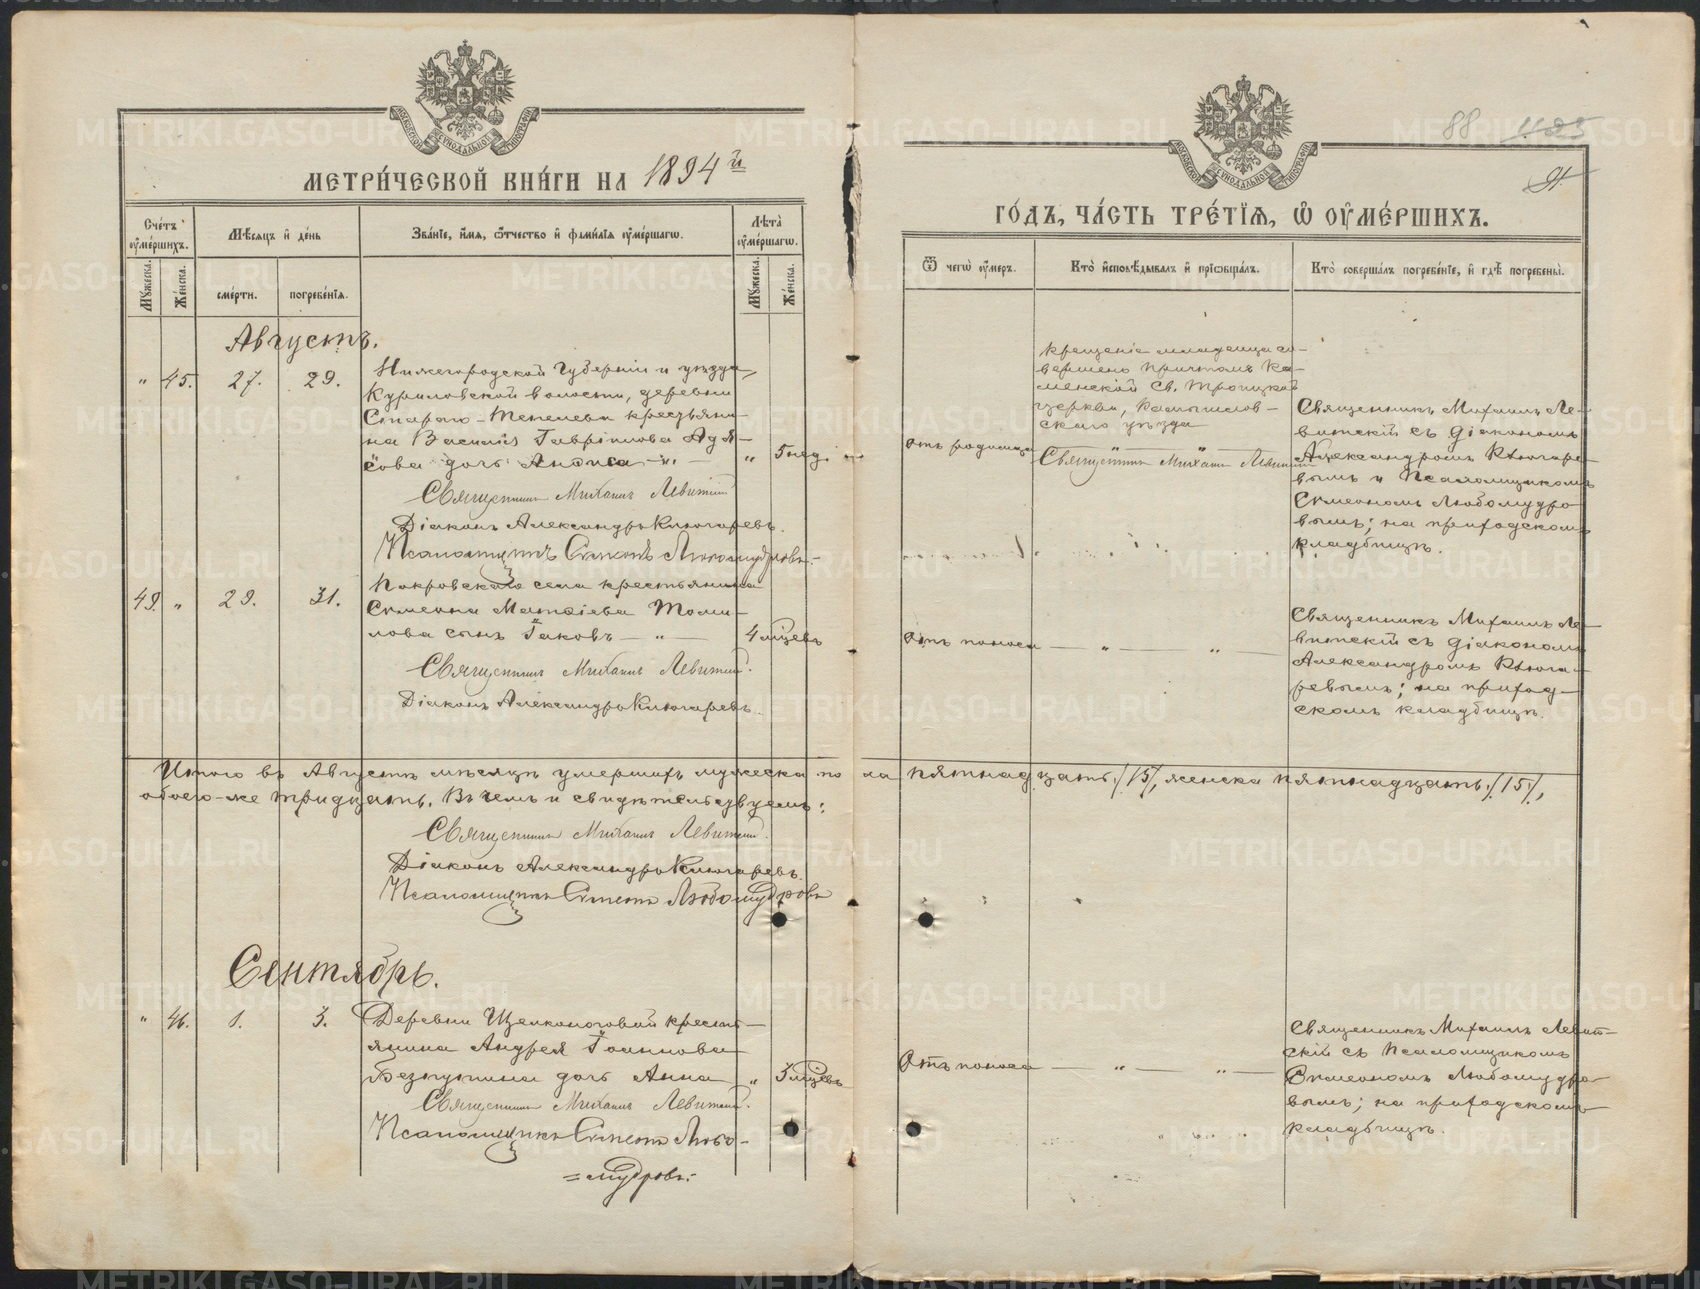 МЕТРИ́ЧЕСКОЙ КНИ́ГИ НА 1894 й
Сче́тъ оу҆ме́ршихъ.
Мѣ́сяцъ и҆ де́нь
Зва́нїе, и҆́мя, ѻ҆́тчество и҆ фами́лїя оу҆ме́ршагѡ.
Лѣ́та оу҆ме́ршагѡ.
Му́жеска.
Же́нска.
сме́рти.
погребе́нїя.
Му́жеска.
Же́нска.
Августъ.
" 45. 27. 29.
Нижегородской Губерніи и уѣзда,
Куриловской волости, деревни
Стараго-Тепелева крестьяни-
на Василія Гавріилова
сова дочь Анѳиса - " -
" 5 нед.
Священникъ Михаилъ Левитскій
Діаконъ Александръ Ключаревъ.
Псаломщикъ Симеонъ Любомудровъ.
49. " 29. 31.
Покровскаго села крестьянина
Симеона Матѳіева Томи-
лова сынъ Іаковъ — " —
4 мѣсцевъ
Священникъ Михаилъ Левитскій.
Діаконъ Александръ Ключаревъ.
Итого въ Августѣ мѣсяцѣ умершихъ мужеска по ла пятнадцать /15/, женска пятнадцать /15/,
обоего-же тридцать. Въ чемъ и свидѣтельствуемъ:
Священникъ Михаилъ Левитскій.
Діаконъ Александръ Ключаревъ.
Псаломщикъ Симеонъ Любомудровъ
Сентябрь.
" 46. 1. 3.
Деревни Щелконоговой кресть-
янина Андрея Іоаннова
дочь Анна
" 3 мѣсцевъ
Священникъ Михаилъ Левитскій.
Псаломщикъ Симеонъ Любо-
=мудровъ.
88 91
ГО́ДЪ, ЧА́СТЬ ТРЕ́ТЇЯ, Ѡ҆ ОУ҆МЕ́РШИХЪ.
Ѿ чегѡ̀ оу҆́меръ.
Кто̀ и҆сповѣ́дывалъ и҆ прїѡбща́лъ.
Кто̀ соверша́лъ погребе́нїе, и҆ гдѣ̀ погребены̀.
Отъ родимца
Крещеніе младенца со-
вершено причтомъ Ка-
менской Св. Троицкой
церкви, Камышлов-
скаго уѣзда
Священникъ Михаилъ Левитскій
Священникъ Михаилъ Ле-
витскій съ діакономъ
Александромъ Ключаре-
вымъ и Псаломщикомъ
Симеономъ Любомудро-
вымъ; на приходскомъ
кладбищѣ.
Отъ поноса — " — " —
Священникъ Михаилъ Ле-
витскій съ діакономъ
Александромъ Ключа-
ревымъ; на приход-
скомъ кладбищѣ.
Отъ поноса — " — " —
Священникъ Михаилъ Левит-
скій съ Псаломщикомъ
Симеономъ Любомудро-
вымъ; на приходскомъ
кладбищѣ.
METRIKI.GASO-URAL.RU